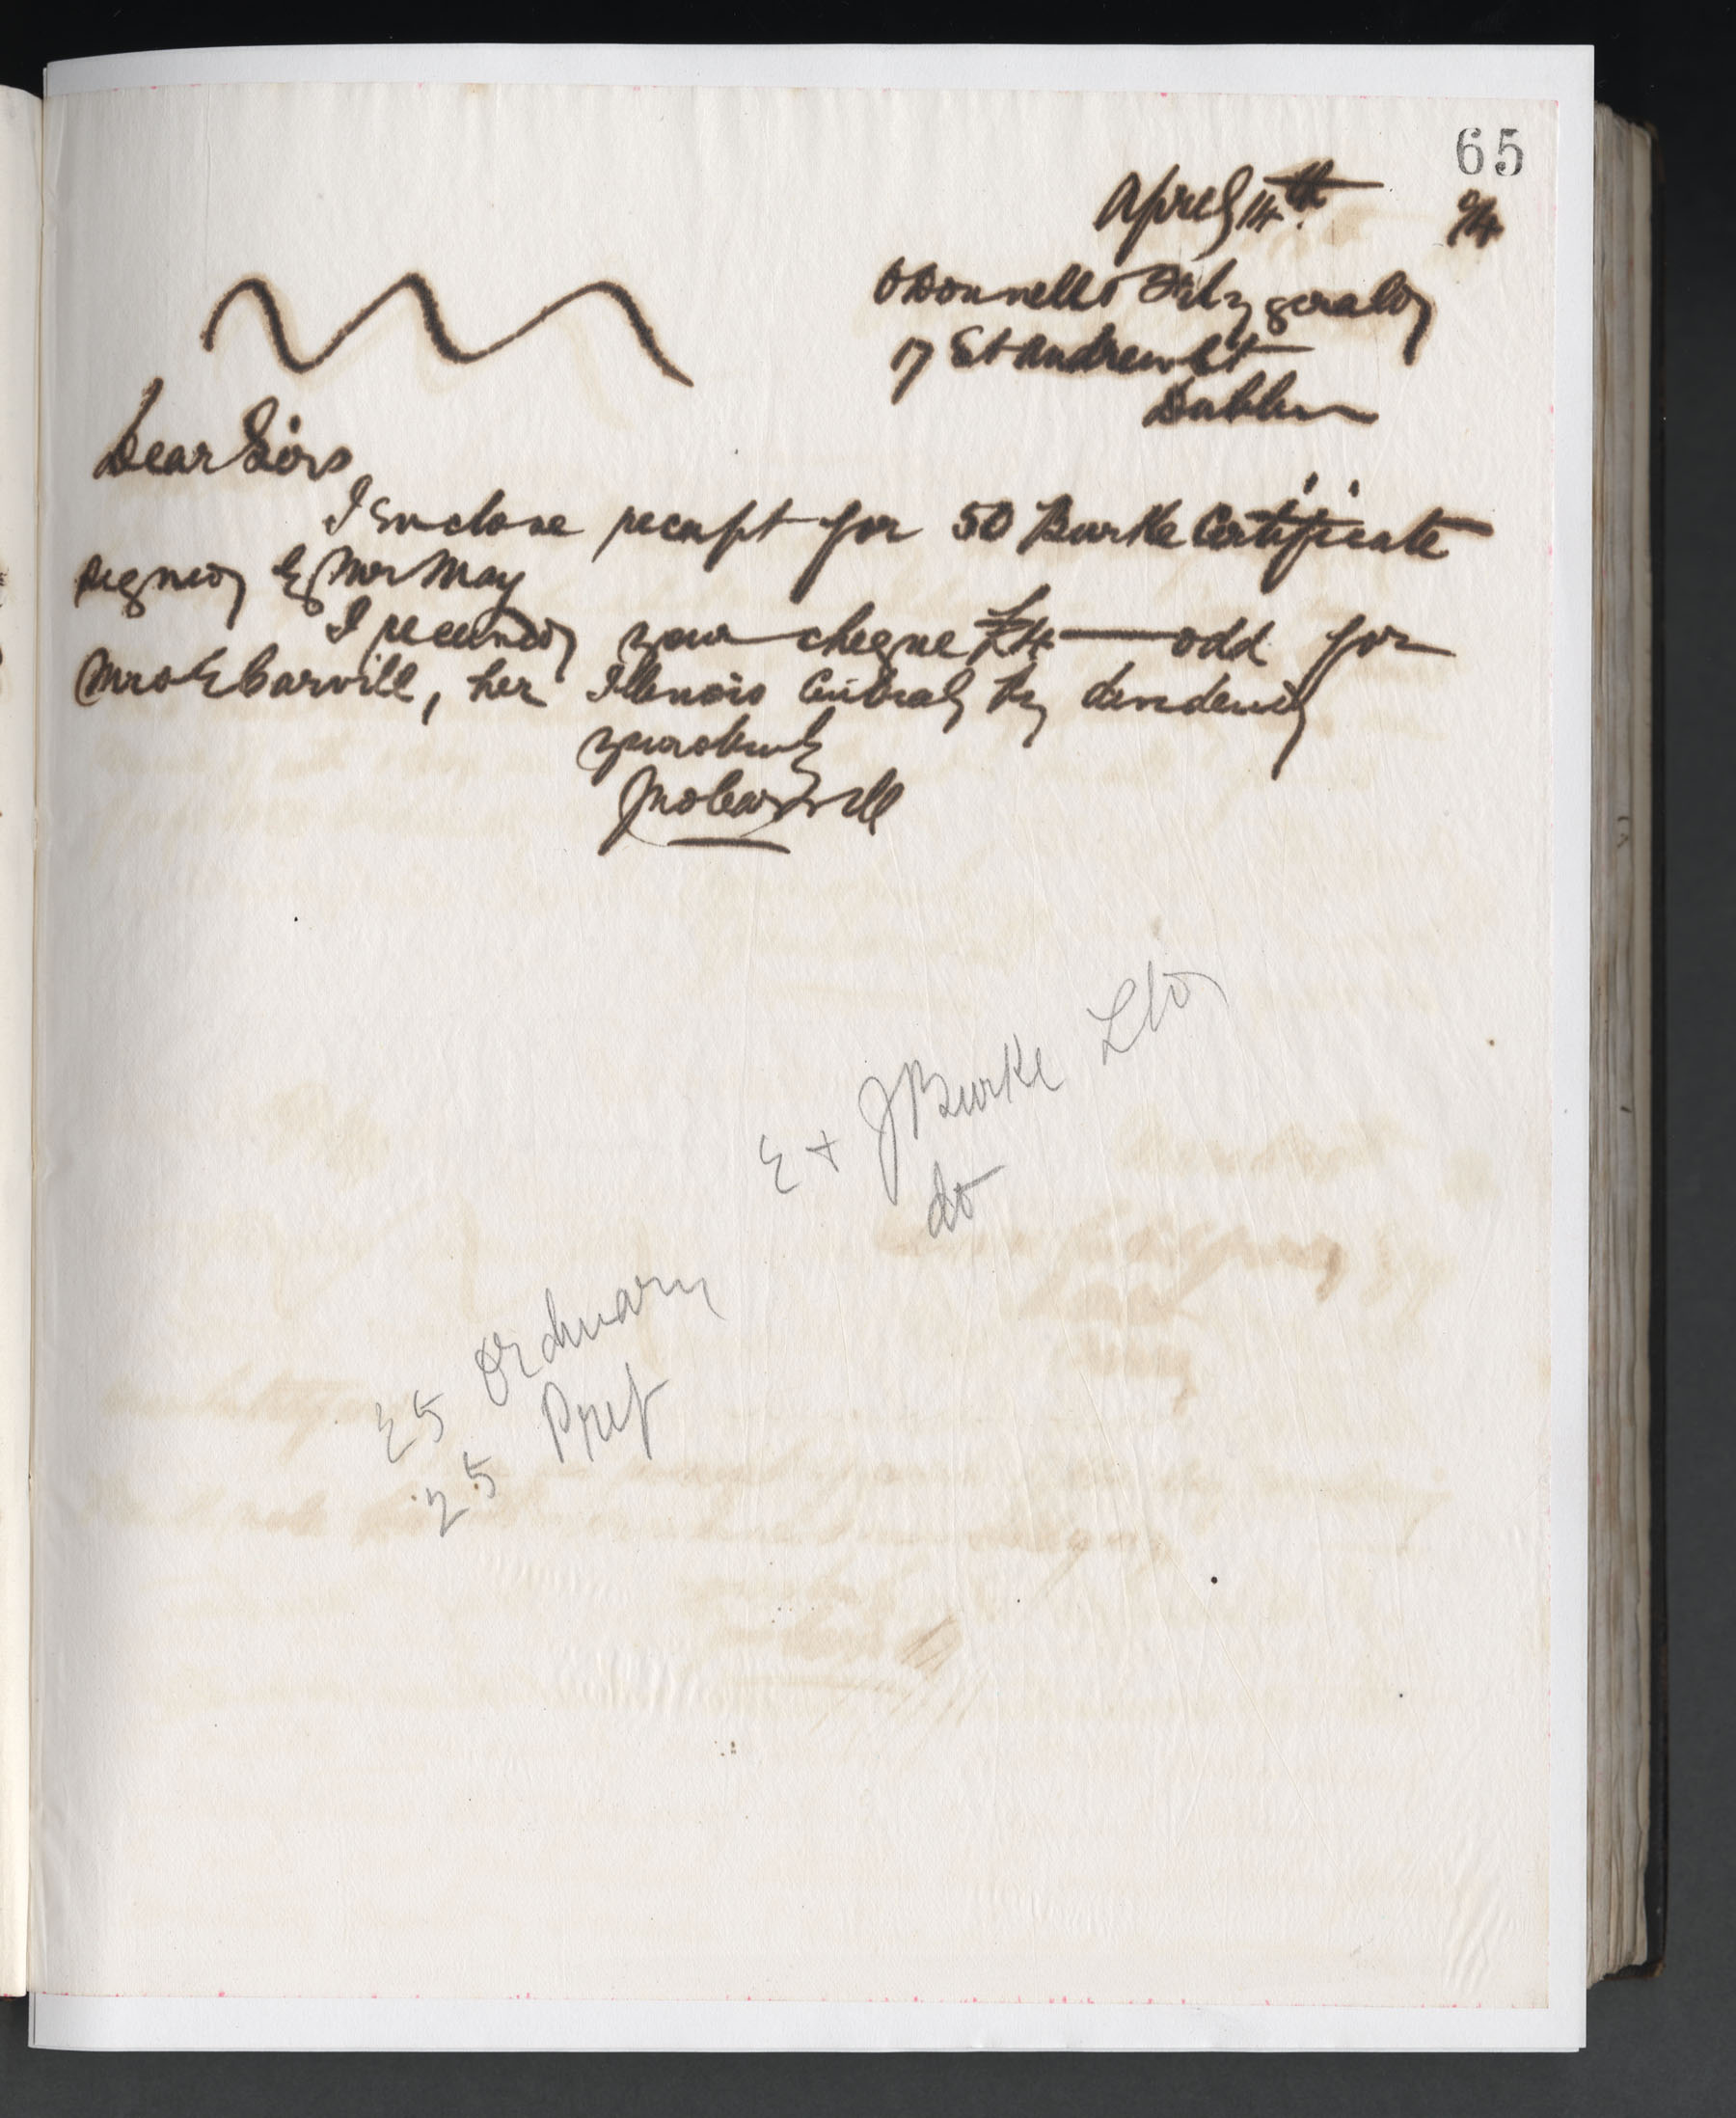 65
April 14th 04
O'Donnell & Fitzgerald
17 St Andrew St
Dublin
Dear Sirs
I Enclose receipt for 50 Burke Certificate
signed by Mr May
I received your cheque £4 — odd for
Mrs E Carvill, her Illinois Central Ry dividend
yours truly
Jno Carvill
E + J Burke Ltd
do
25 Ordinary
25 Pref